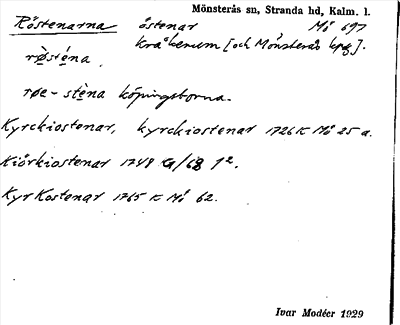 Mönsterås sn, Stranda hd, Kalm. l.
Röstenarna östenar Mö 697
Kråkerum [och Mönsterås kpg].
røsténa.
røe-stèna köpingsborna.
Kyrckiostenar, kyrckiostenar 1726 K Mö 25 a.
Kiörkiostenar 1748 G/68 1².
KyrKostenar 1765 K Mö 62.
Ivar Modéer 1929